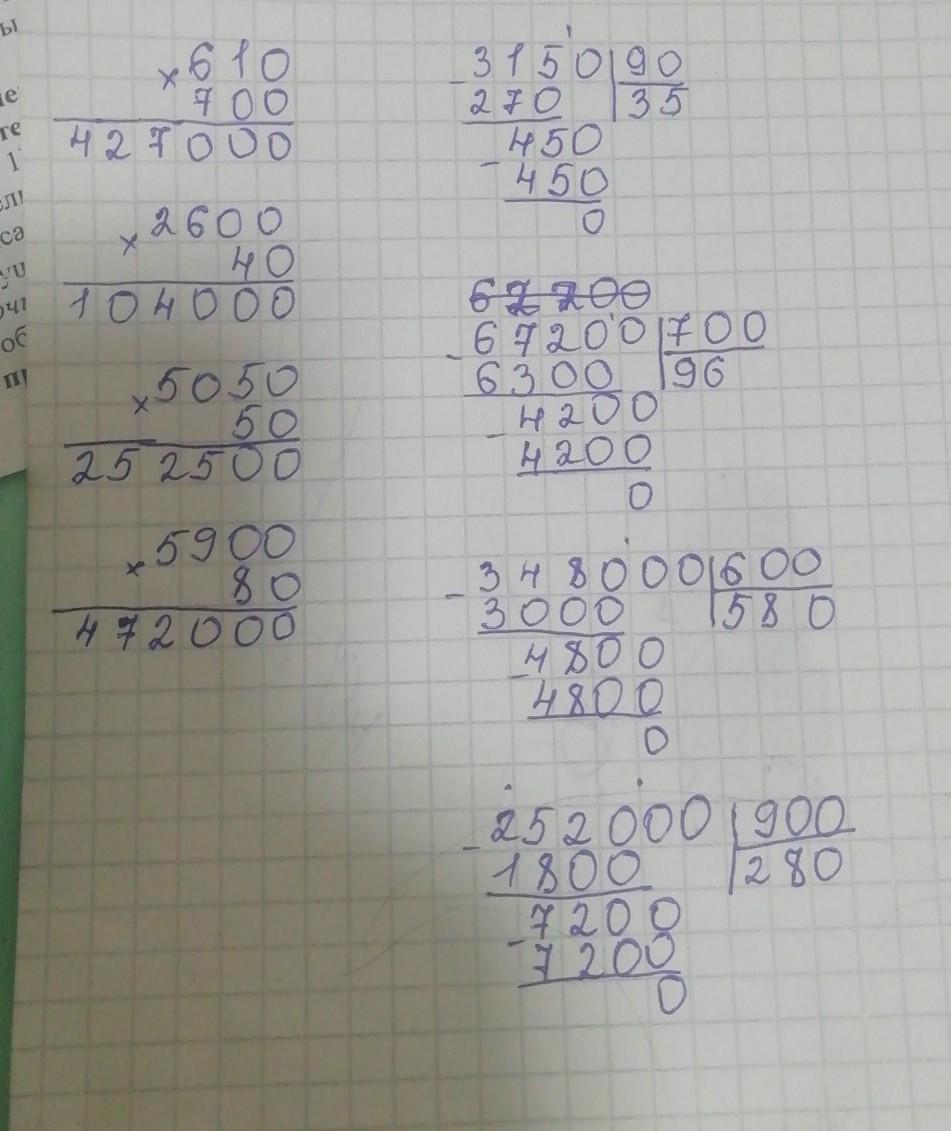 ы
ие
те
1
ел
са
уш
очт
об
п
×610
700
427000
×2600
40
104000
×5050
50
252500
×5900
80
472000
-3150|90
270 |35
-450
450
0
67200|700
-6300 |96
-4200
4200
0
-348000|600
3000 |580
-4800
4800
0
-252000|900
1800 |280
-7200
7200
0